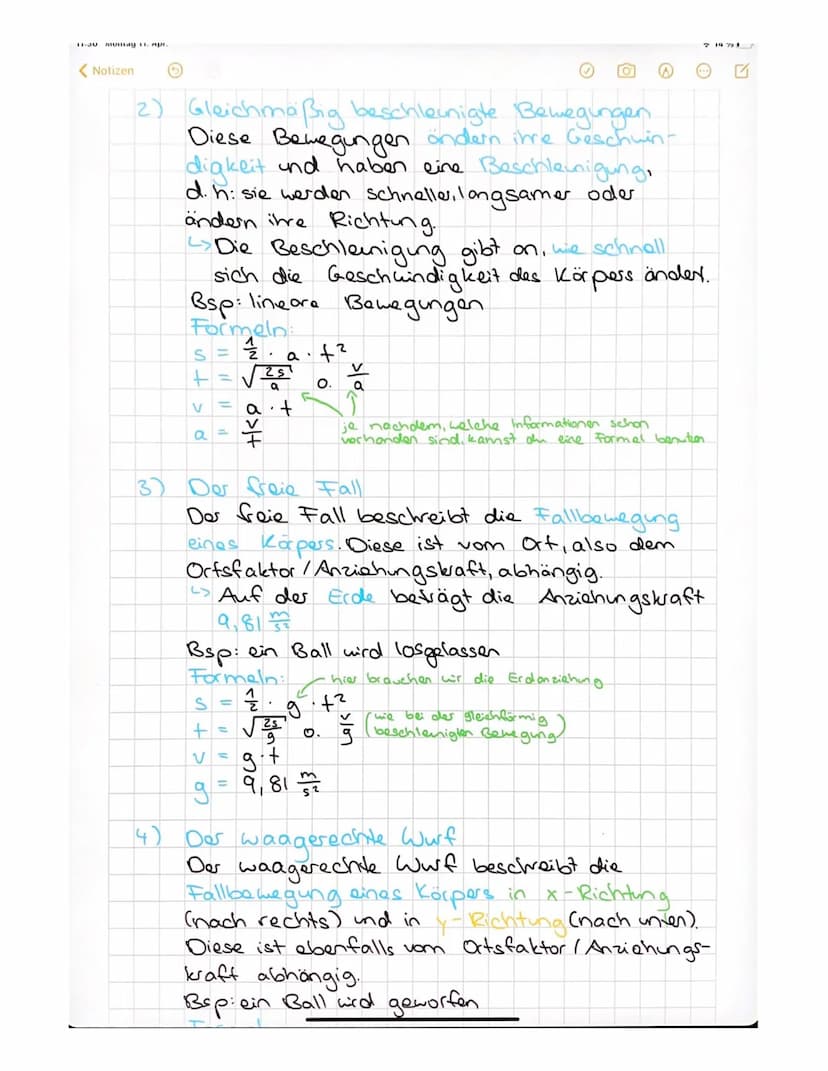 11:30 Montag 11. Apr.
14 %
Notizen
2) Gleichmäßig beschleunigte Bewegungen
Diese Bewegungen ändern ihre Geschwin-
digkeit und haben eine Beschleunigung,
d.h: sie werden schneller, langsamer oder
ändern ihre Richtung.
↳ Die Beschleunigung gibt an, wie schnell
sich die Geschwindigkeit des Körpers ändert.
Bsp: lineare Bewegungen
Formeln:
s = 1/2 · a · t²
t = √(2s/a) o. v/a
v = a · t
a = v/t
je nachdem, welche Informationen schon
vorhanden sind, kannst du eine Formel benutzen
3) Der freie Fall
Der freie Fall beschreibt die Fallbewegung
eines Körpers. Diese ist vom Ort, also dem
Ortsfaktor / Anziehungskraft, abhängig.
↳ Auf der Erde beträgt die Anziehungskraft
9,81 m/s²
Bsp: ein Ball wird losgelassen
Formeln: hier brauchen wir die Erdanziehung
s = 1/2 · g · t²
t = √(2s/g) o. v/g (wie bei der gleichförmig
beschleunigten Bewegung)
v = g · t
g = 9,81 m/s²
4) Der waagerechte Wurf
Der waagerechte Wurf beschreibt die
Fallbewegung eines Körpers in x-Richtung
(nach rechts) und in y-Richtung (nach unten).
Diese ist ebenfalls vom Ortsfaktor / Anziehungs-
kraft abhängig.
Bsp: ein Ball wird geworfen